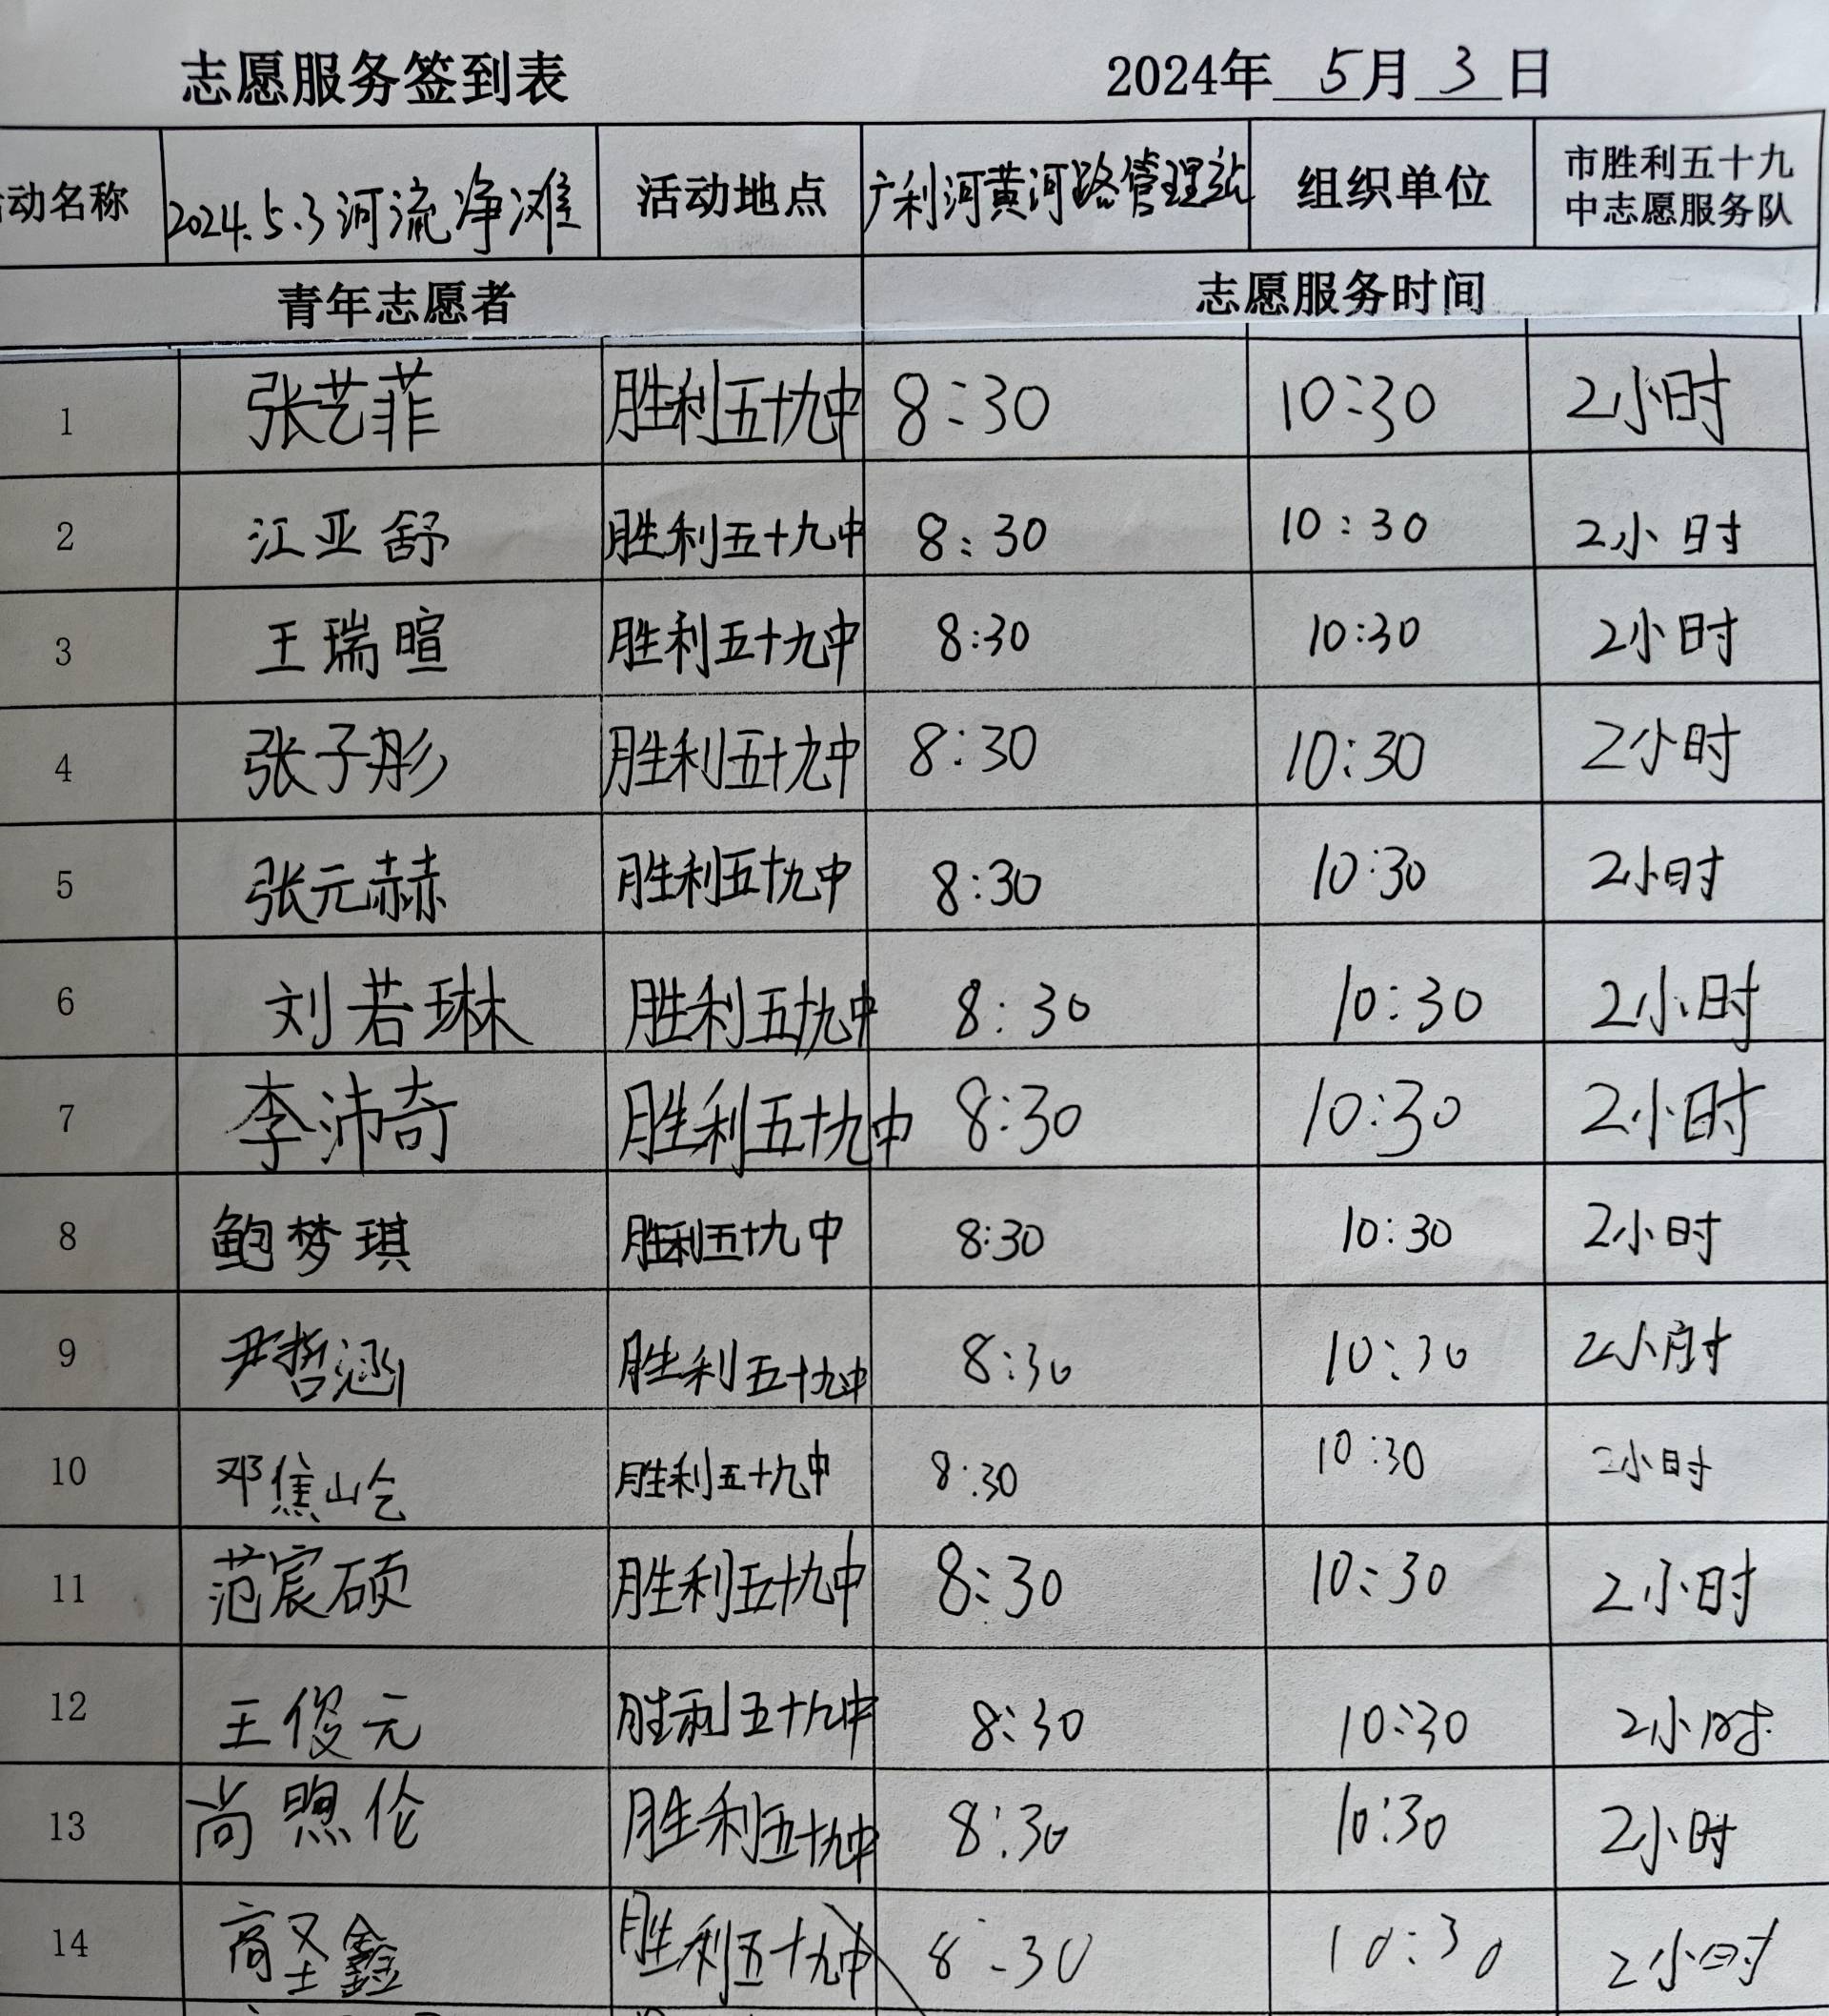 志愿服务签到表 2024年 5月 3日
动名称 2024.5.3河流净滩 活动地点 广利河黄河路管理站 组织单位 市胜利五十九
中志愿服务队
青年志愿者 志愿服务时间
1 张艺菲 胜利五十九中 8:30 10:30 2小时
2 江亚舒 胜利五十九中 8:30 10:30 2小时
3 王瑞暄 胜利五十九中 8:30 10:30 2小时
4 张子彤 胜利五十九中 8:30 10:30 2小时
5 张元赫 胜利五十九中 8:30 10:30 2小时
6 刘若琳 胜利五十九中 8:30 10:30 2小时
7 李沛奇 胜利五十九中 8:30 10:30 2小时
8 鲍梦琪 胜利五十九中 8:30 10:30 2小时
9 尹哲涵 胜利五十九中 8:30 10:30 2小时
10 邓焦屹 胜利五十九中 8:30 10:30 2小时
11 范宸硕 胜利五十九中 8:30 10:30 2小时
12 王俊元 胜利五十九中 8:30 10:30 2小时
13 尚煦伦 胜利五十九中 8:30 10:30 2小时
14 商圣鑫 胜利五十九中 8:30 10:30 2小时